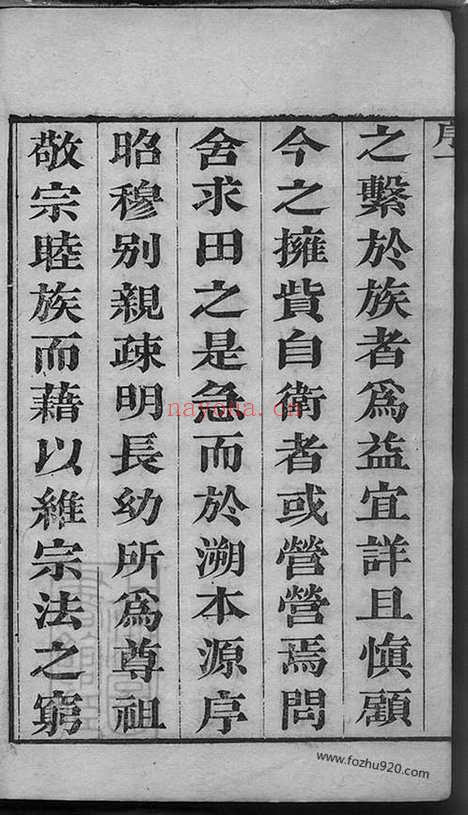 序
之繫於族者爲益宜詳且愼顧
今之擁貲自衛者或營營焉問
舍求田之是急而於溯本源序
昭穆别親疎明長幼所爲尊祖
敬宗睦族而藉以維宗法之窮
www.fozhu920.com